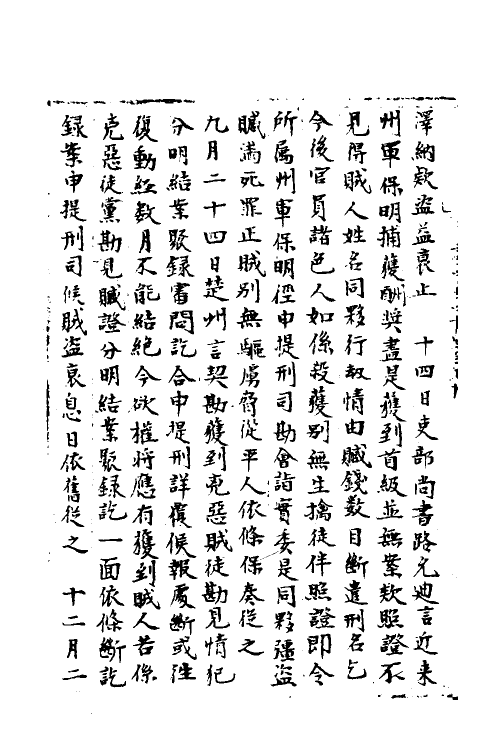 澤納欵盜益衰止　十四日吏部尚書路允迪言近来
州軍保明捕獲酬奬盡是獲到首級並無案欵照證不
見得賊人姓名同夥行刼情由贓錢數目斷遣刑名乞
今後官員諸色人如係殺獲別無生擒徒伴照證即令
所属州軍保明徑申提刑司勘會詣實委是同夥彊盜
贓滿死罪正賊別無驅虜脅從平人依條保奏從之
九月二十四日楚州言契勘獲到兇惡賊徒勘見情犯
分明結案聚録書問訖合申提刑詳覆候報處斷或往
復動經數月不能結絶今欲權將應有獲到賊人若係
兇惡徒黨勘見贓證分明結案聚録訖一面依條斷訖
録案申提刑司候賊盜衰息日依舊從之　十二月二